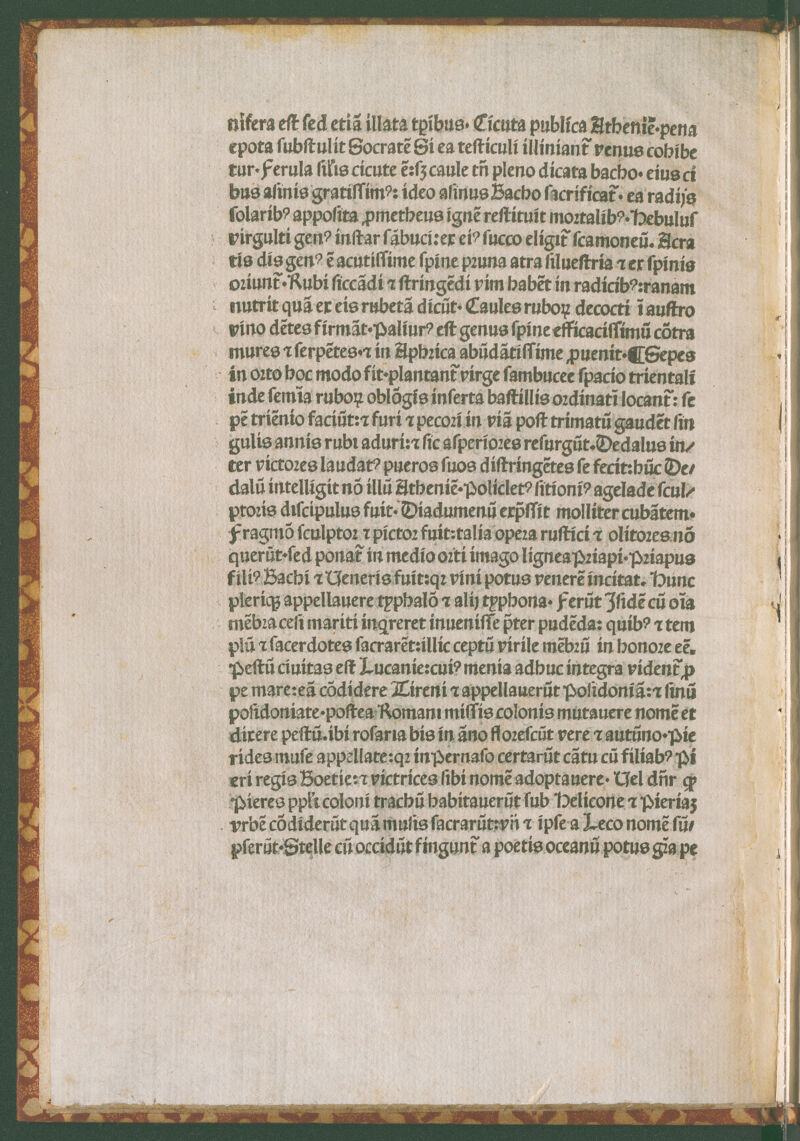 nifera est sed etiā illata tꝑibus. Cicuta publica Atheniē.pena
epota substulit Socratē Si ea testiculi illiniant᷑ venus cohibe
tur. Ferula silis cicute ē:sꝫ caule tñ pleno dicata bacho. eius ci
bus asinis gratissimꝰ: ideo asinus Bacho sacrificat᷑. ea radijs
solaribꝰ apposita ꝓmetheus ignē restituit mortalibꝰ. Hebulus
virgulti genꝰ instar sābuci:ex eiꝰ succo eligit᷑ scamoneū. Acra
tis dis genꝰ ē acutissime spine pruna atra siluestria ⁊ ex spinis
oriunt᷑. Rubi siccādi ⁊ stringēdi vim habēt in radicibꝰ:ranam
nutrit quā ex eis rubetā dicūt. Caules ruboꝝ decocti ī austro
vino dētes firmāt. Paliurꝰ est genus spine efficacissimū cōtra
mures ⁊ serpētes.⁊ in Aphrica abūdātissime ꝓuenit.¶Sepes
in orto hoc modo fit.plantant᷑ virge sambucee spacio trientali
inde semīa ruboꝝ oblōgis inserta bastillis ordinati locant᷑: se
pē triēnio faciūt:⁊ furi ⁊ pecori in viā post trimatū gaudēt sin
gulis annis rubi aduri:⁊ sic asperiores resurgūt. Dedalus in/
ter victores laudatꝰ pueros suos distringētes se fecit:hūc De/
dalū intelligit nō illū Atheniē. Policletꝰ sitioniꝰ agelade scul/
ptoris discipulus fuit. Diadumenū exp̄ssit molliter cubātem.
Fragmō sculptor ⁊ pictor fuit:talia opera rustici ⁊ olitores nō
querūt.sed ponat᷑ in medio orti imago lignea Priapi. Priapus
filiꝰ Bachi ⁊ Veneris fuit:qꝛ vini potus venerē incitat. Hunc
pleriqꝫ appellauere typhalō ⁊ alij typhona. Ferūt Isidē cū oīa
mēbra cesi mariti inqreret inuenisse p̄ter pudēda: quibꝰ ⁊ tem
plū ⁊ sacerdotes sacrarēt:illic ceptū virile mēbrū in honore eē.
Pestū ciuitas est Lucanie:cuiꝰ menia adhuc integra vident᷑ ꝓ
pe mare:eā cōdidere Tireni ⁊ appellauerūt Posidoniā:⁊ sinū
posidoniate.postea Romani missis colonis mutauere nomē et
dixere pestū.ibi rosaria bis in āno florescūt vere ⁊ autūno. Pie
rides muse appellate:qꝛ in Pernaso certarūt cātu cū filiabꝰ Pi
eri regis Boetie:⁊ victrices sibi nomē adoptauere. Vel dn̄r ꝙ
Pieres ppl̄i coloni trachū habitauerūt sub Helicone ⁊ Pieriaꝫ
vrbē cōdiderūt quā musis sacrarūt:vn̄ ⁊ ipse a Leco nomē sū/
pserūt. Stelle cū occidūt fingunt᷑ a poetis oceanū potus gr̄a pe